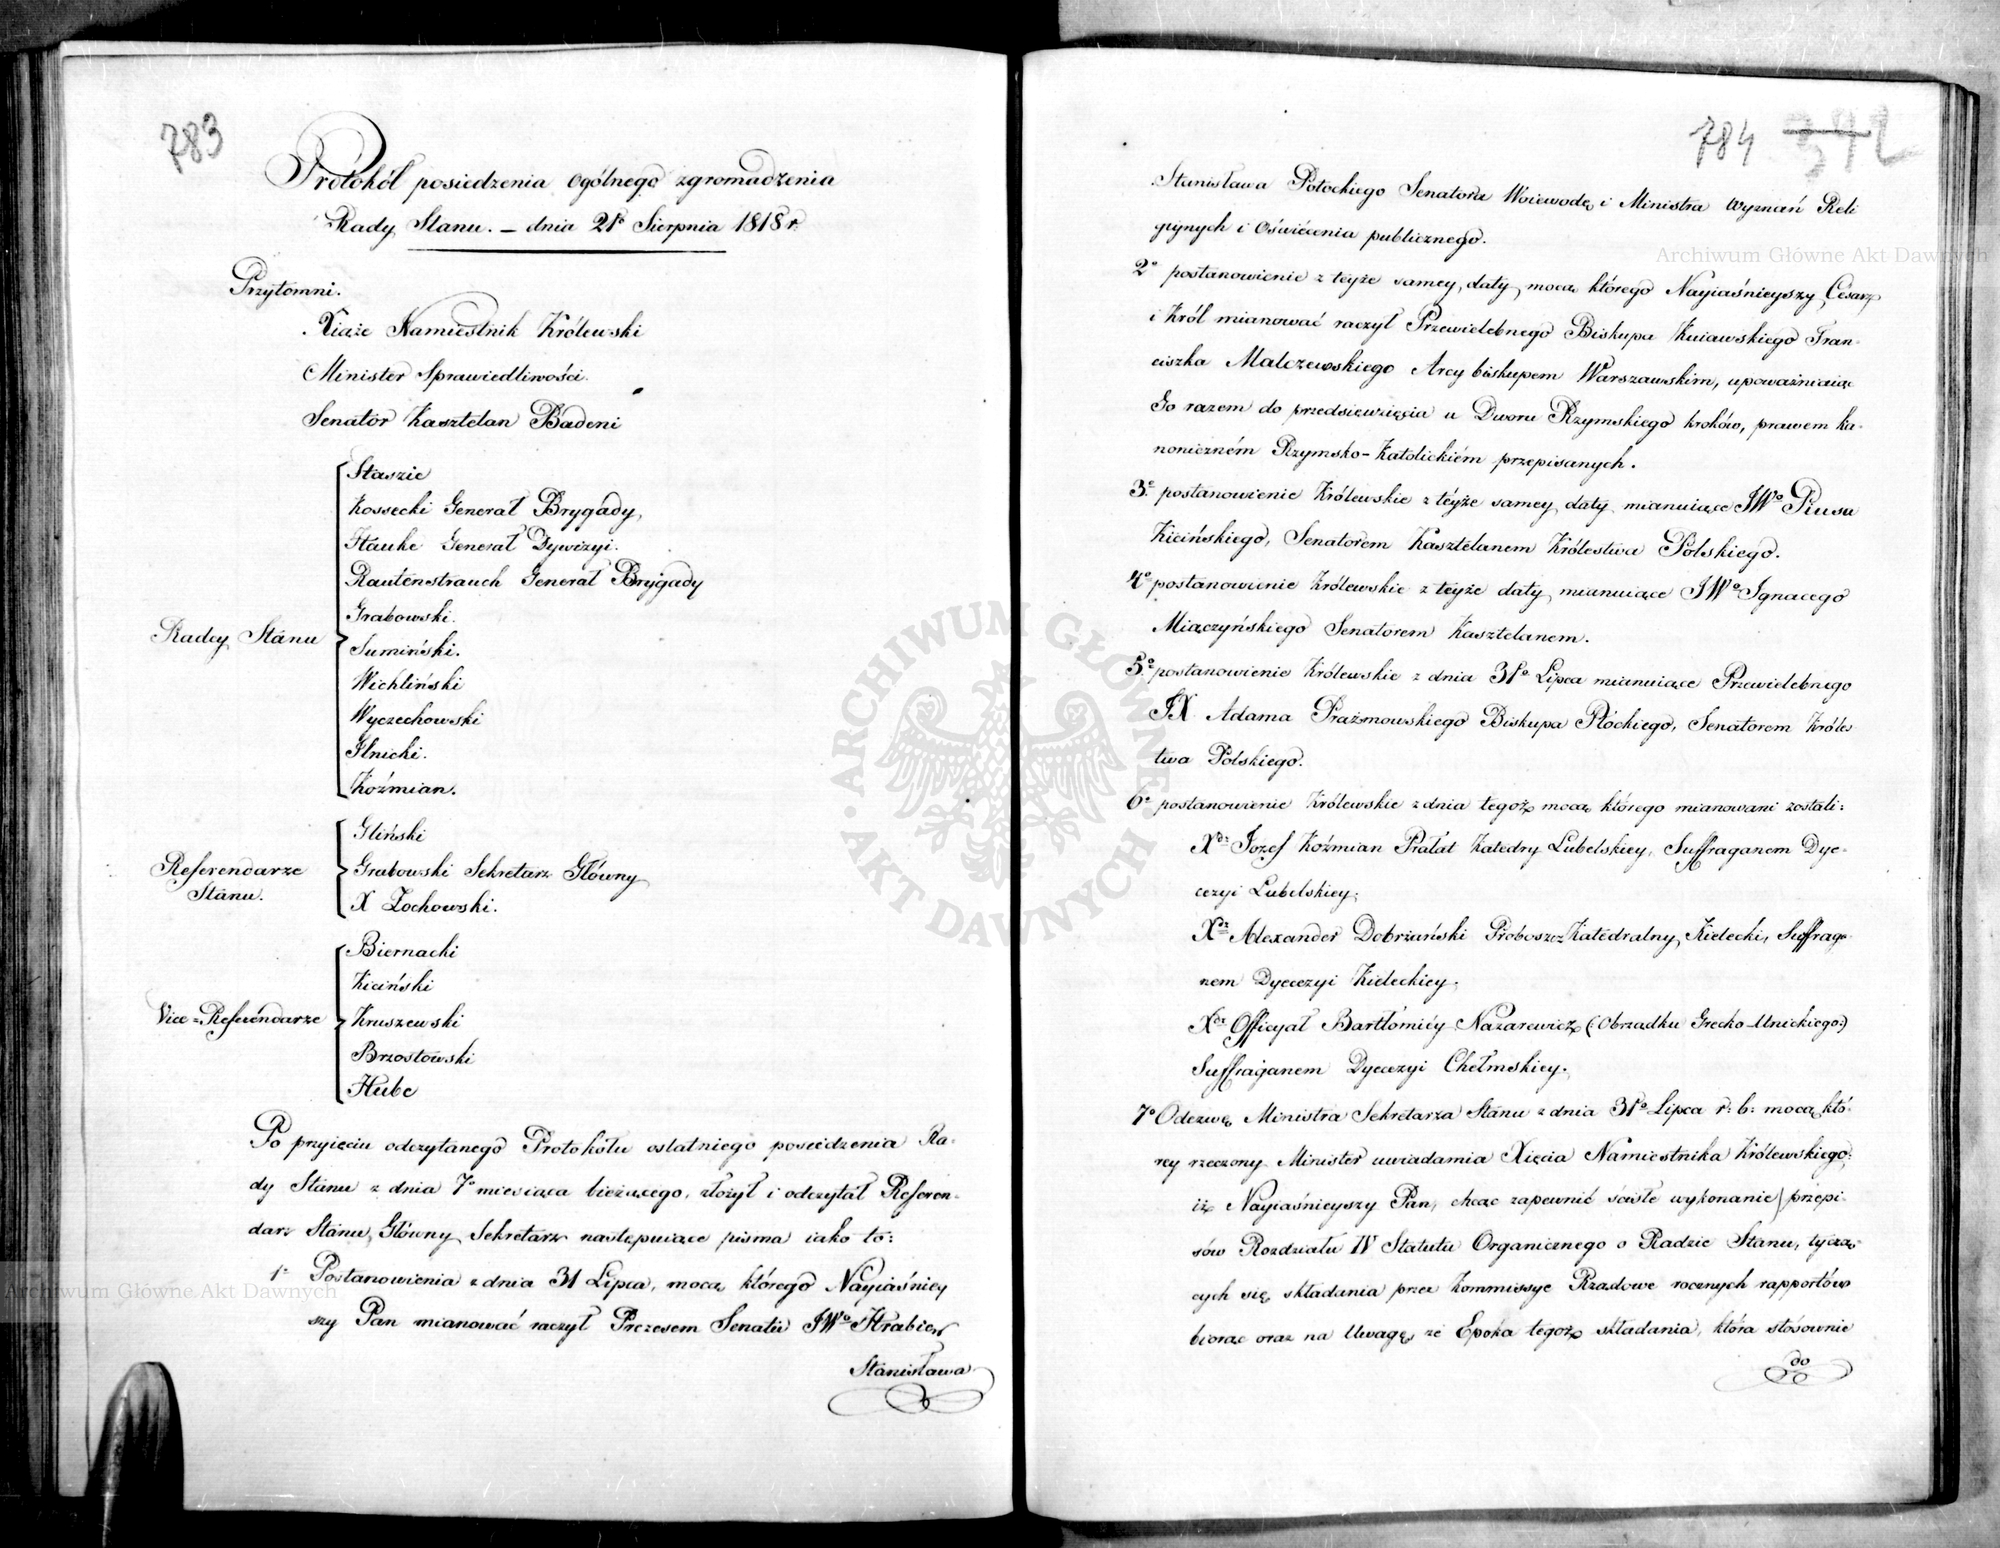 783
Protokół posiedzenia ogólnego zgromadzenia
Rady Stanu. — dnia 21º Sierpnia 1818 r.
Przytomni.
Xiąże Namiestnik Królewski
Minister Sprawiedliwości.
Senator Kasztelan Badeni
Radcy Stanu
Staszic
Kossecki Generał Brygady,
Hauke Generał Dywizyi.
Rautenstrauch Generał Brygady
Grabowski.
Sumiński.
Wichliński
Wyczechowski
Ilnicki.
Koźmian.
Referendarze
Stanu.
Gliński
Grabowski Sekretarz Główny
X Żochowski.
Vice=Referendarze
Biernacki
Kiciński
Kruszewski
Brzostowski
Hube
Po przyięciu odczytanego Protokółu ostatniego posiedzenia Ra-
dy Stanu z dnia 7º miesiąca bieżącego, złożył i odczytał Referen-
darz Stanu, Główny Sekretarz następuiące pisma iako to:
1º Postanowienia z dnia 31 Lipca, mocą którego Nayiaśniey
szy Pan mianować raczył Prezesem Senatu JWº Hrabiego
Stanisława
784 392
Stanisława Potockiego Senatora Woiewodę i Ministra Wyznań Reli
giynych i Oświecenia publicznego.
2º postanowienie z teyże samey daty, mocą którego Nayiaśnieyszy Cesarz
i Król mianować raczył Przewielebnego Biskupa Kuiawskiego Fran-
ciszka Malczewskiego Arcybiskupem Warszawskim, upoważniaiąc
Go razem do przedsięwzięcia u Dworu Rzymskiego kroków, prawem ka-
noniczném Rzymsko-Katolickiém przepisanych.
3º postanowienie Królewskie z téyże samey daty mianuiące JWº Piusa
Kicińskiego, Senatorem Kasztelanem Królestwa Polskiego.
4º postanowienie Królewskie z teyże daty mianuiące JWº Ignacego
Miączyńskiego Senatorem Kasztelanem.
5º postanowienie Królewskie z dnia 31º Lipca mianuiące Przewielebnego
JX Adama Prażmowskiego Biskupa Płockiego, Senatorem Króles
twa Polskiego.
6º postanowienie Królewskie z dnia tegoż mocą którego mianowani zostali:
Xdz Jozef Koźmian Prałat Katedry Lubelskiey, Suffraganem Dye-
cezyi Lubelskiey;
Xdz Alexander Dobrzański Proboszcz Katedralny Kielecki, Suffraga-
nem Dyecezyi Kieleckiey.
Xdz Officyał Bartłomiéy Nazarewicz (: Obrządku Grecko-Unickiego:)
Suffraganem Dyecezyi Chełmskiey.
7º Odezwę Ministra Sekretarza Stanu z dnia 31º Lipca r: b: mocą któ-
rey rzeczony Minister uwiadamia Xięcia Namiestnika Królewskiego,
iż Nayiaśnieyszy Pan, chcąc zapewnić ścisłe wykonanie przepi-
sów Rozdziału IV Statutu Organicznego o Radzie Stanu, tyczą-
cych się składania przez Kommissye Rządowe rocznych rapportów
biorąc oraz na Uwagę, że Epoka tegoż składania, która stósownie
do
Archiwum Główne Akt Dawnych
Archiwum Główne Akt Dawnych
ARCHIWUM GŁÓWNE
AKT DAWNYCH